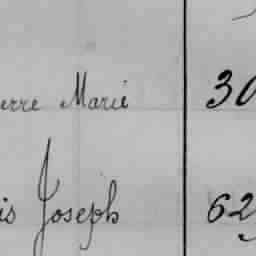 erre Marie 30
is Joseph 62